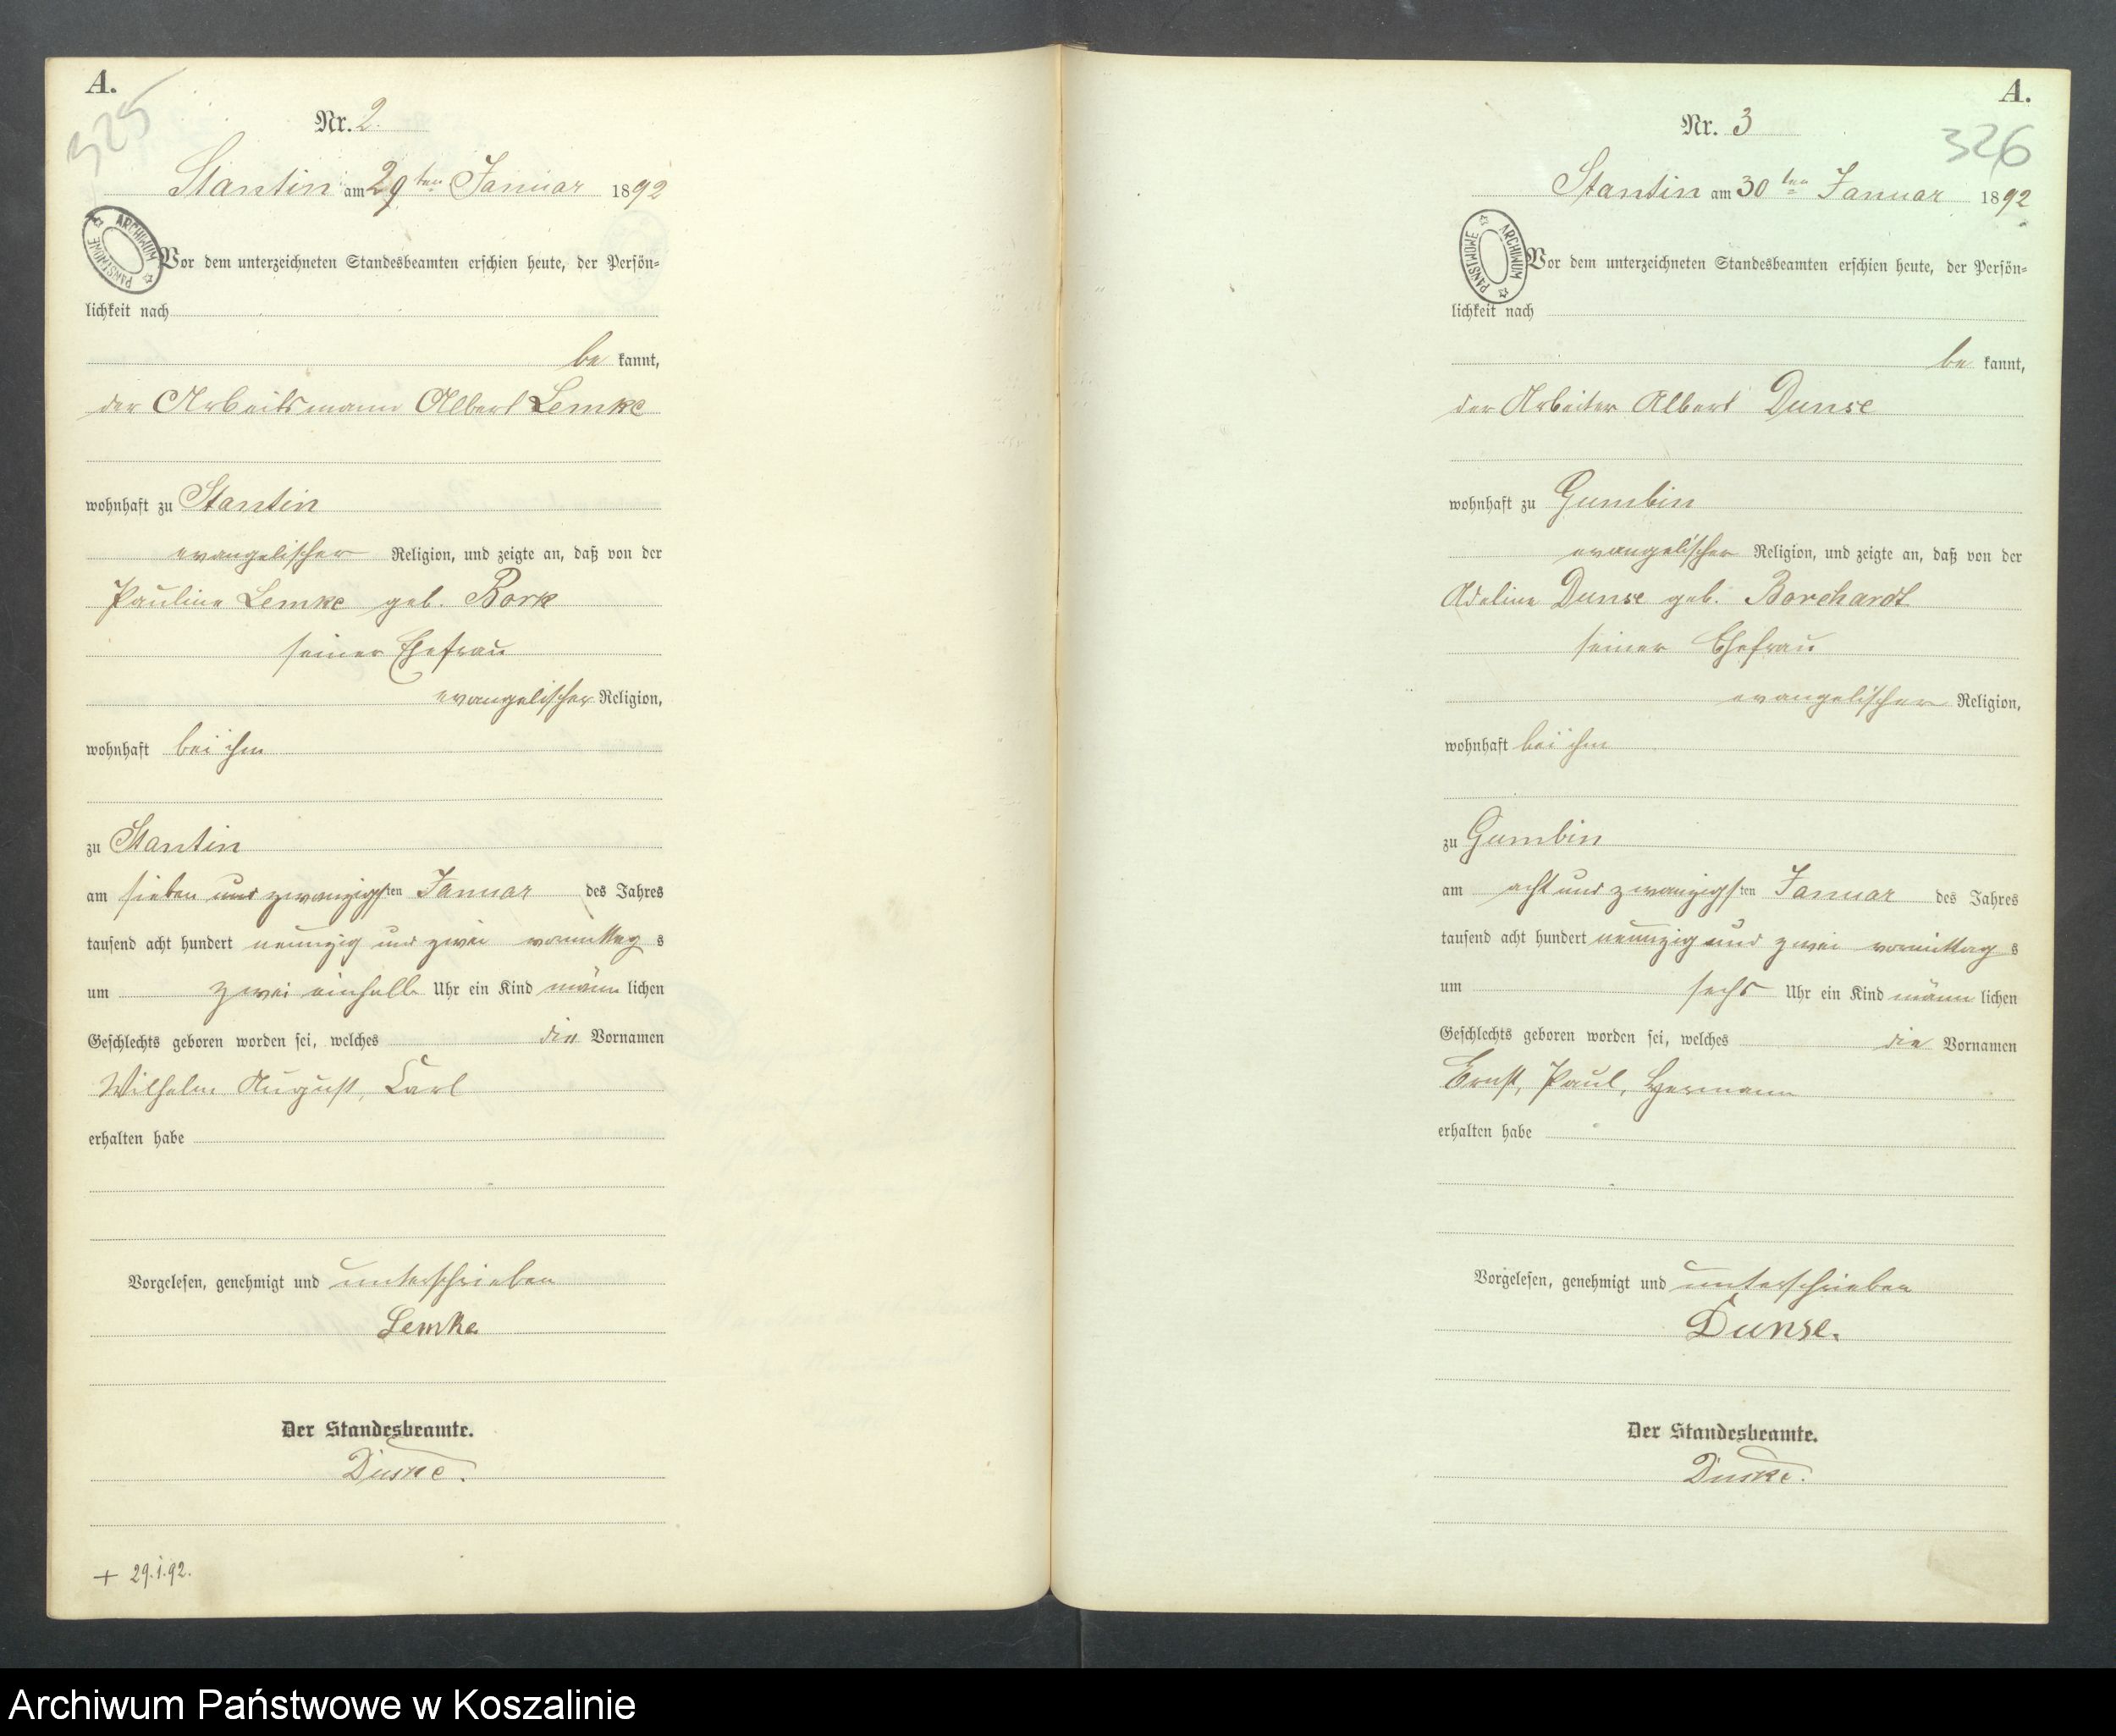 A.
325
Nr. 2.
Stantin am 29ten Januar 1892
ARCHIWUM PAŃSTWOWE
Vor dem unterzeichneten Standesbeamten erschien heute, der Persön-
lichkeit nach
be kannt,
der Arbeitsmann Albert Lemke
wohnhaft zu Stantin
evangelischer Religion, und zeigte an, daß von der
Pauline Lemke geb. Bork
seiner Ehefrau
evangelischer Religion,
wohnhaft bei ihm
zu Stantin
am sieben und zwanzigsten Januar des Jahres
tausend acht hundert neunzig und zwei vormittag s
um zwei einhalb Uhr ein Kind männ lichen
Geschlechts geboren worden sei, welches die Vornamen
Wilhelm August, Carl
erhalten habe
Vorgelesen, genehmigt und unterschrieben
Lemke
Der Standesbeamte.
Duske.
+ 29.1.92.
A.
326
Nr. 3
Stantin am 30ten Januar 1892
ARCHIWUM PAŃSTWOWE
Vor dem unterzeichneten Standesbeamten erschien heute, der Persön-
lichkeit nach
be kannt,
der Arbeiter Albert Dunse
wohnhaft zu Gumbin
evangelischer Religion, und zeigte an, daß von der
Adeline Dunse geb. Borchardt
seiner Ehefrau
evangelischer Religion,
wohnhaft bei ihm
zu Gumbin
am acht und zwanzigsten Januar des Jahres
tausend acht hundert neunzig und zwei vormittag s
um sechs Uhr ein Kind männ lichen
Geschlechts geboren worden sei, welches die Vornamen
Ernst, Paul, Hermann
erhalten habe
Vorgelesen, genehmigt und unterschrieben
Dunse.
Der Standesbeamte.
Duske.
Archiwum Państwowe w Koszalinie